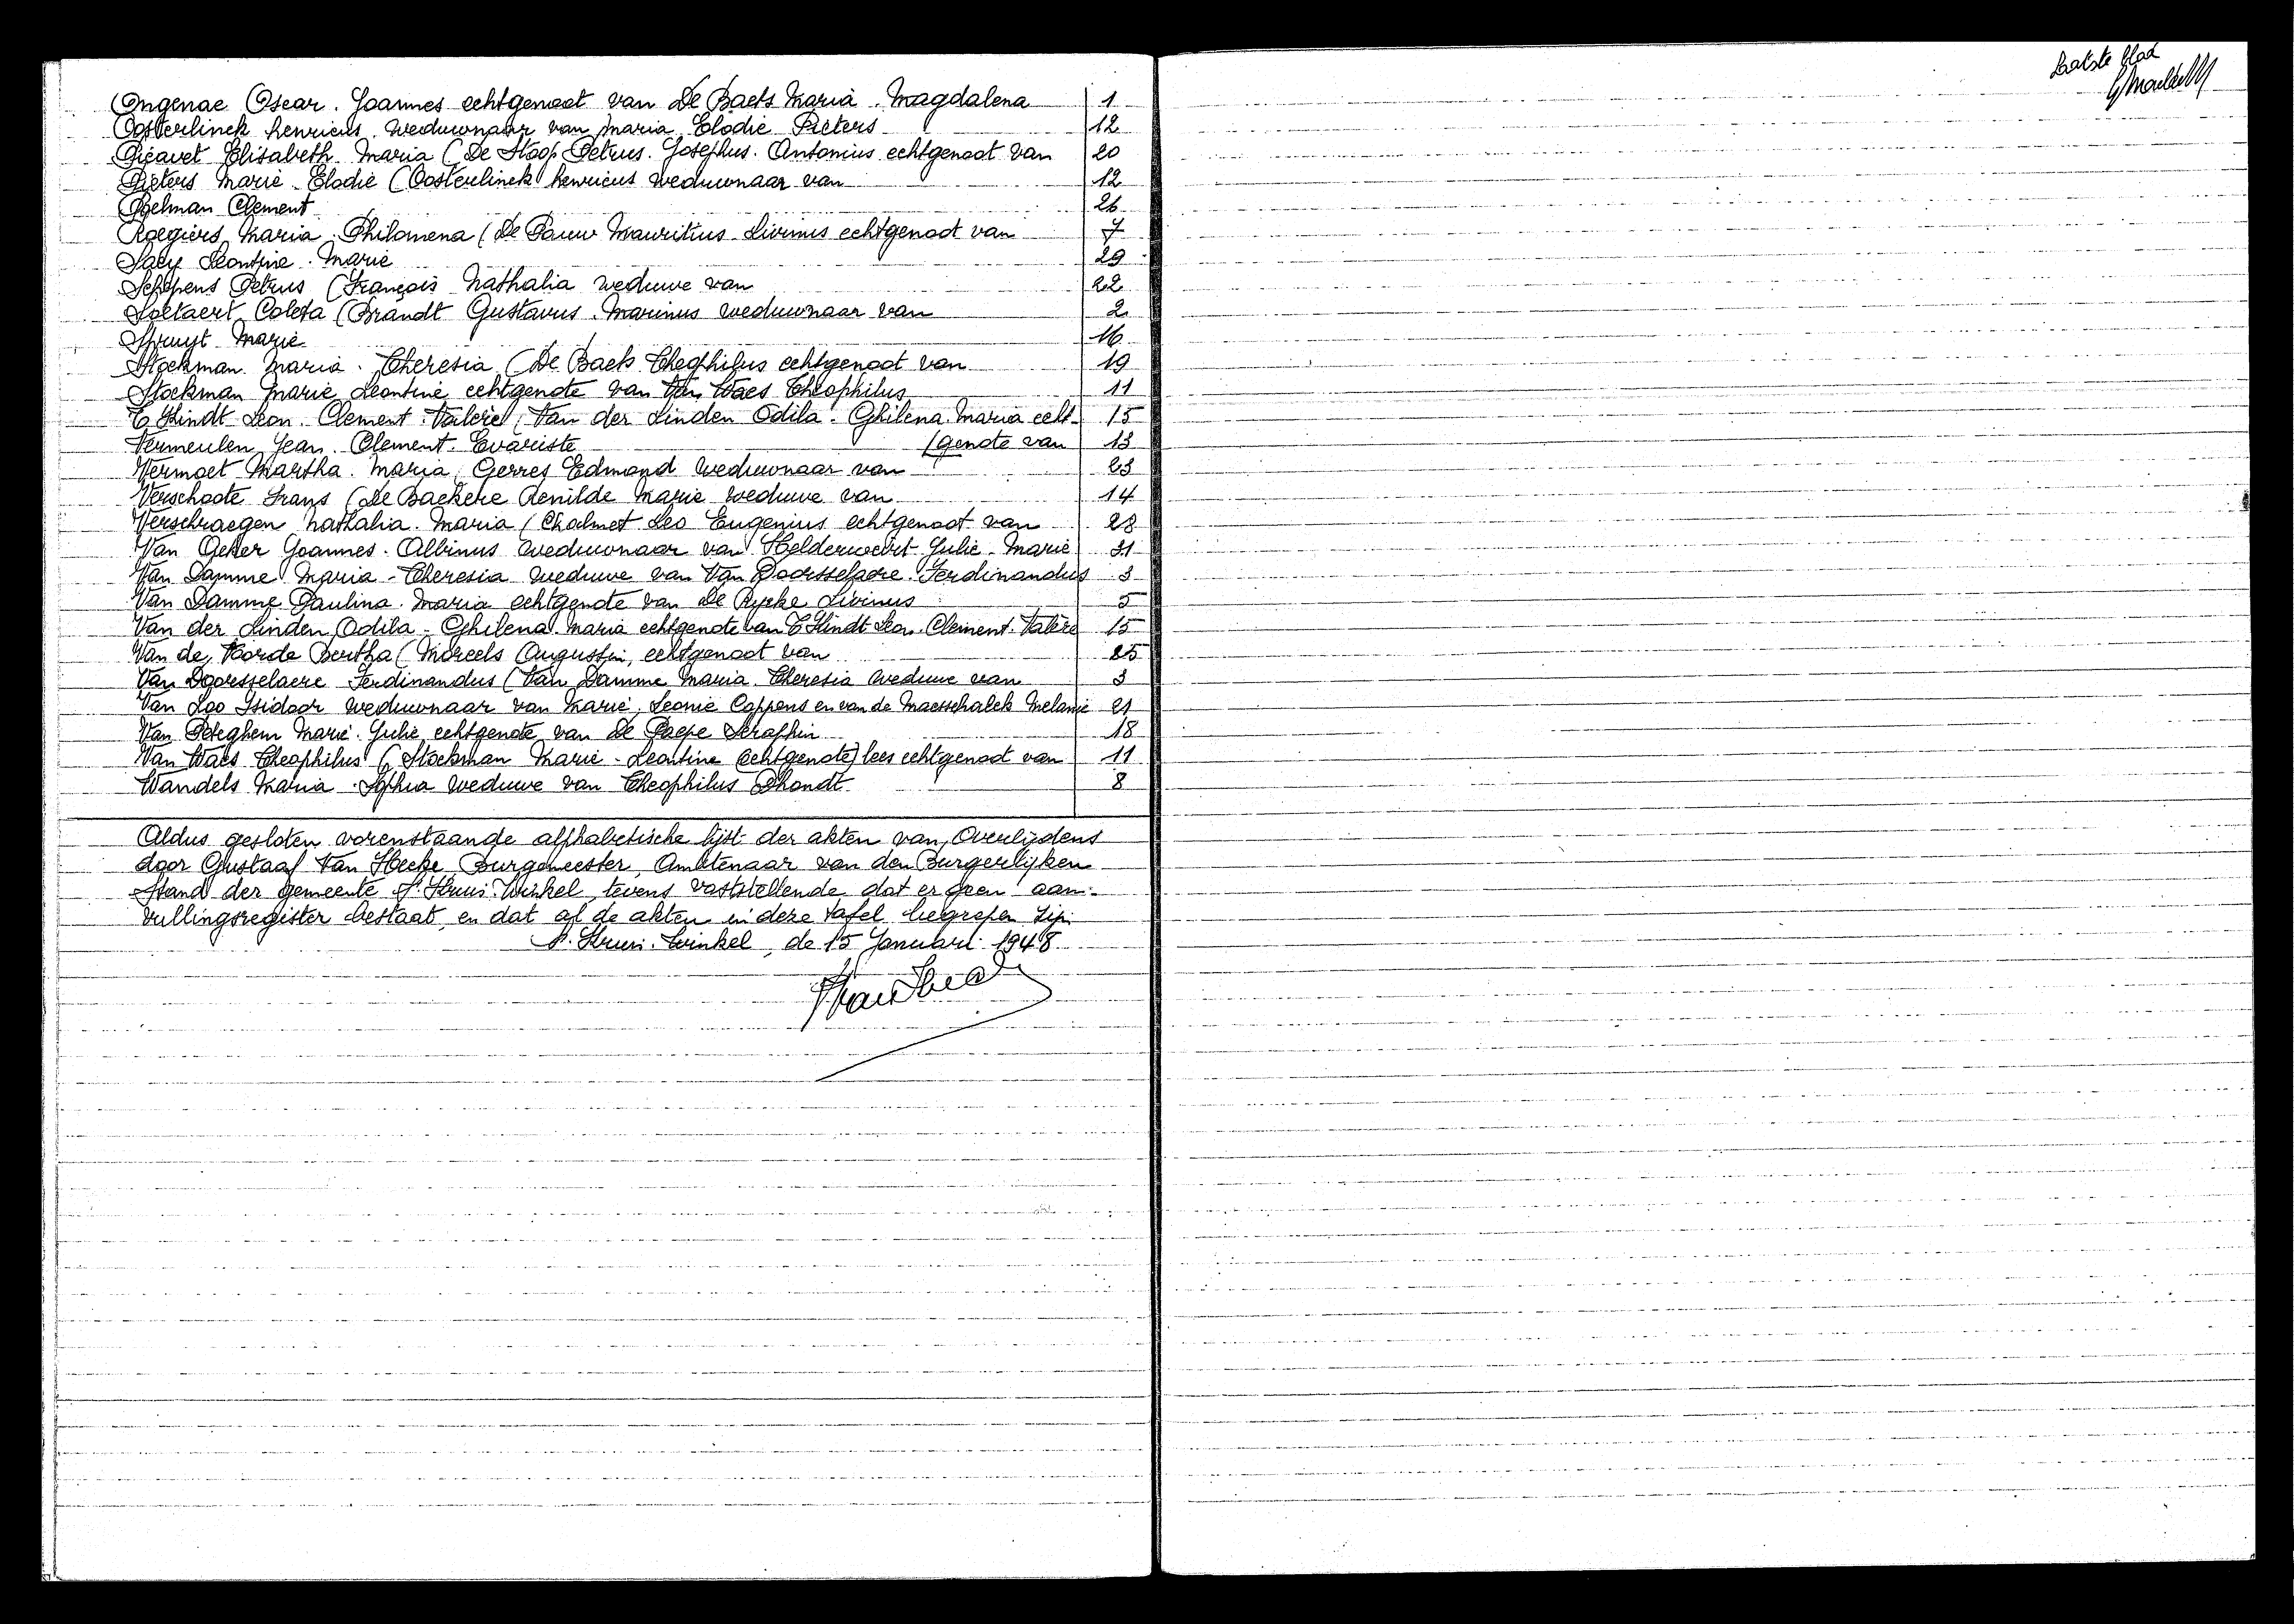 Ongenae Oscar. Joannes echtgenoot van De Baets Maria. Magdalena 1
Oosterlinck Henricus weduwnaar van Maria Elodie Pieters 12
Picavet Elisabeth Maria (De Stoop Petrus. Josephus. Antonius echtgenoot van 20
Pieters Marie. Elodie (Oosterlinck Henricus weduwnaar van 12
Poelman Clement 26
Roegiers Maria. Philomena (De Pauw Mauritius Livinus echtgenoot van 7
Saey Leontine. Marie 29
Schepens Petrus (François Nathalia weduwe van 22
Soetaert Coleta (Brandt Gustavus. Marinus weduwnaar van 2
Spruyt Marie 16
Stockman Maria. Theresia (De Baets Theophilus echtgenoot van 19
Stockman Marie Leontine echtgenote van Van Waes Theophilus 11
T'Kindt Leon. Clement. Valère (Van der Linden Odila. Ghilena. Maria echt- 15
Vermeulen Jean. Clement. Evariste (genote van 13
Vermoet Martha. Maria Gerres Edmond weduwnaar van 23
Verschoote Frans (De Backere Renilde Marie weduwe van 14
Verschraegen Nathalia. Maria (Chalmet Leo Eugenius echtgenoot van 28
Van Acker Joannes. Albinus weduwnaar van Helderweirt Julie. Marie 31
Van Damme Maria-Theresia weduwe van Van Doorsselaere. Ferdinandus 3
Van Damme Paulina. Maria echtgenote van De Rycke Livinus 5
Van der Linden Odila-Ghilena. Maria echtgenote van T'Kindt Leon. Clement. Valère 15
Van de Voorde Bertha (Moreels Augustin echtgenoot van 25
Van Doorsselaere Ferdinandus (Van Damme Maria. Theresia weduwe van 3
Van Loo Isidoor weduwnaar van Marie, Leonie Coppens en van de Maesschalck Melanie 21
Van Peteghem Marie. Julie echtgenote van De Paepe Seraphin 18
Van Waes Theophilus (Stockman Marie-Leontine (echtgenote) lees echtgenoot van 11
Wandels Maria. Sophia weduwe van Theophilus Dhondt 8
Aldus gesloten vorenstaande alphabetische lijst der akten van Overlijdens
door Gustaaf Van Hecke Burgemeester, Ambtenaar van den Burgerlijken
Stand der gemeente St Kruis. Winkel, tevens vaststellende dat er geen aan-
vullingsregister bestaat, en dat al de akten in deze tafel begrepen zijn
St. Kruis. Winkel, de 15 Januari 1948
Laatste blad